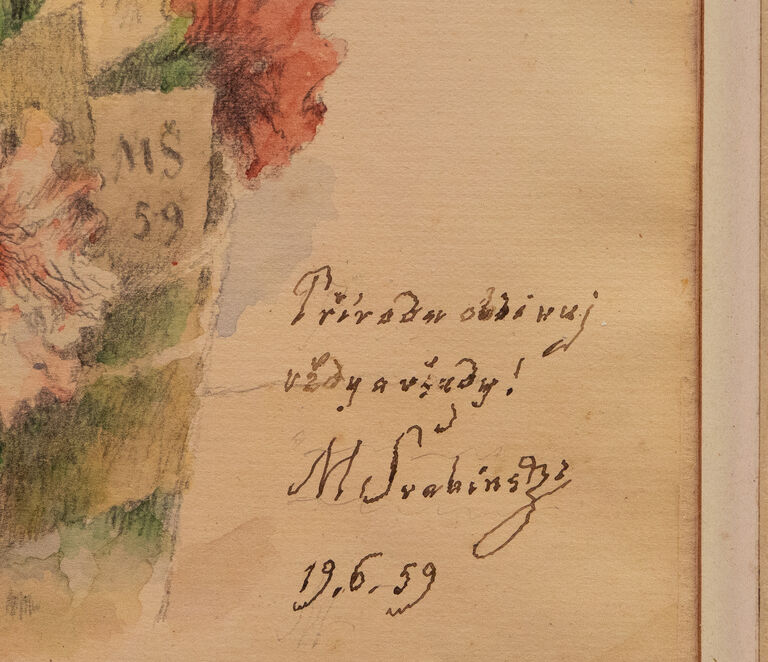 MŠ
59
Přírodu obdivuj
vždy a všudy!
M Švabinský
19.6.59